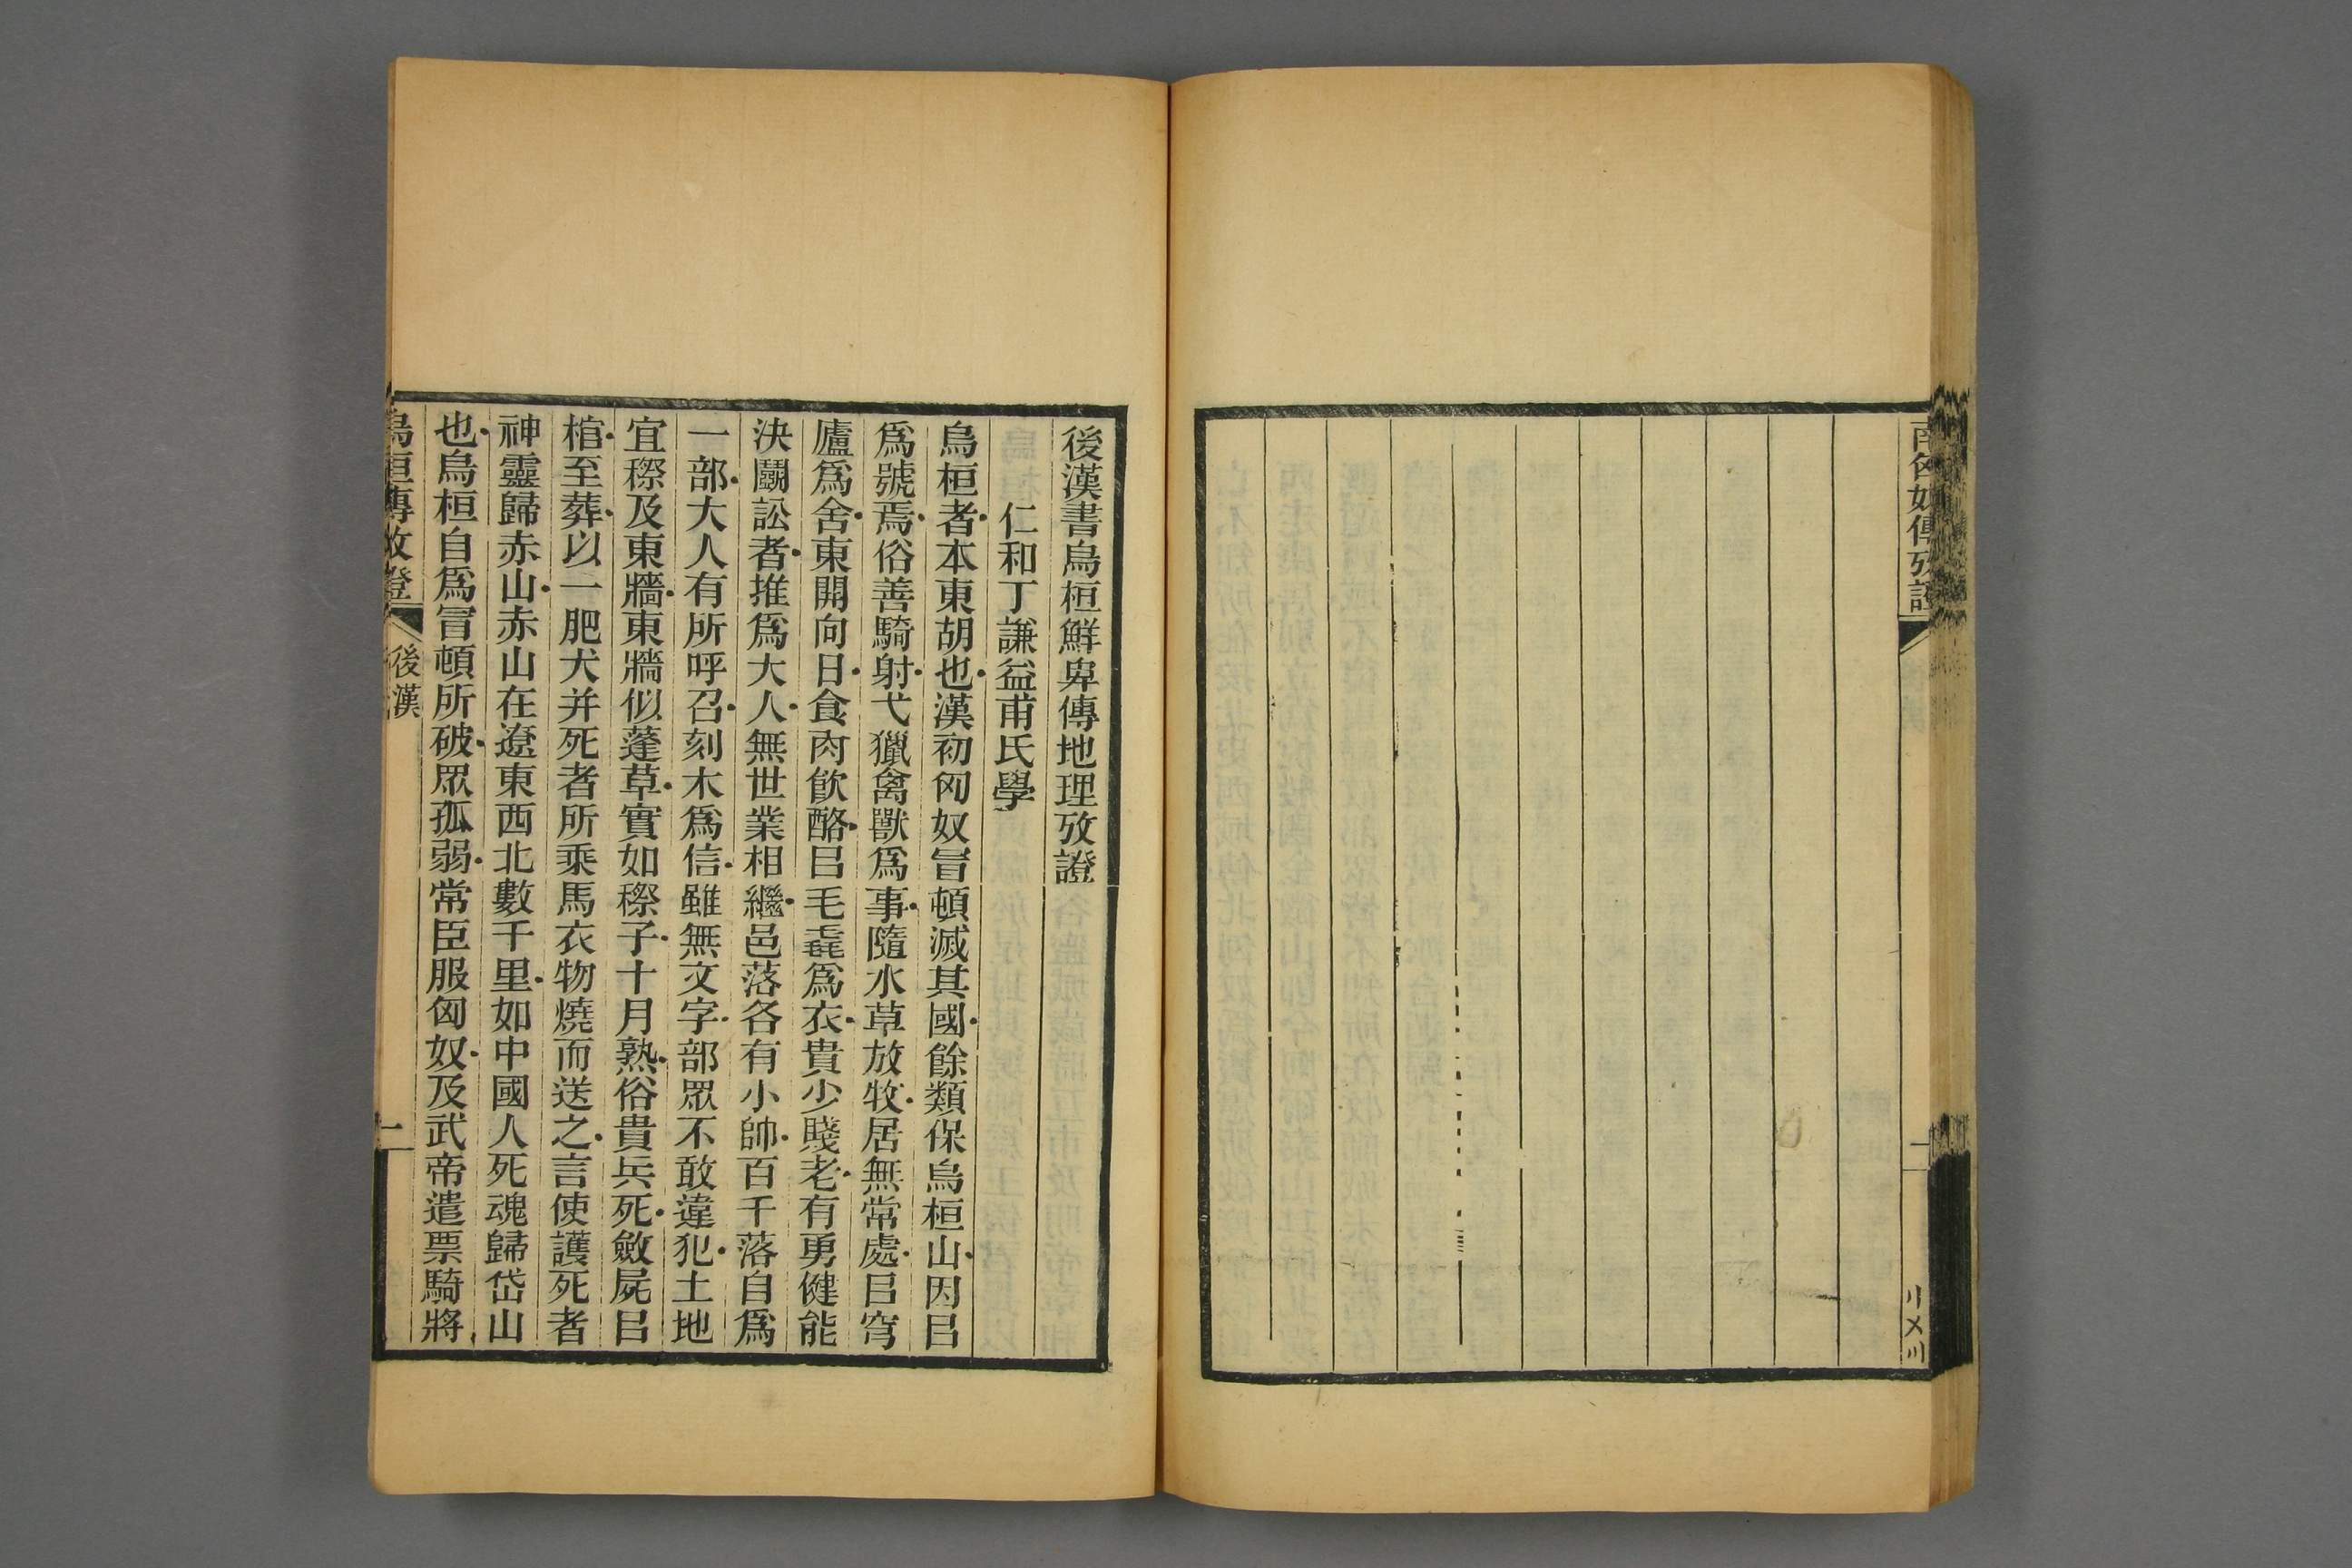 南匈奴傳攷證
後漢書烏桓鮮卑傳地理攷證
仁和丁謙益甫氏學
烏桓者本東胡也漢初匈奴冒頓滅其國餘類保烏桓山因㠯
爲號焉俗善騎射弋獵禽獸爲事隨水草放牧居無常處㠯穹
廬爲舍東開向日食肉飮酪㠯毛毳爲衣貴少賤老有勇健能
決鬭訟者推爲大人無世業相繼邑落各有小帥百千落自爲
一部大人有所呼召刻木爲信雖無文字部眾不敢違犯土地
宜穄及東牆東牆似蓬草實如穄子十月熟俗貴兵死斂屍㠯
棺至葬以一肥犬并死者所乘馬衣物燒而送之言使護死者
神靈歸赤山赤山在遼東西北數千里如中國人死魂歸岱山
也烏桓自爲冒頓所破眾孤弱常臣服匈奴及武帝遣票騎將
烏桓傳攷證
後漢
一